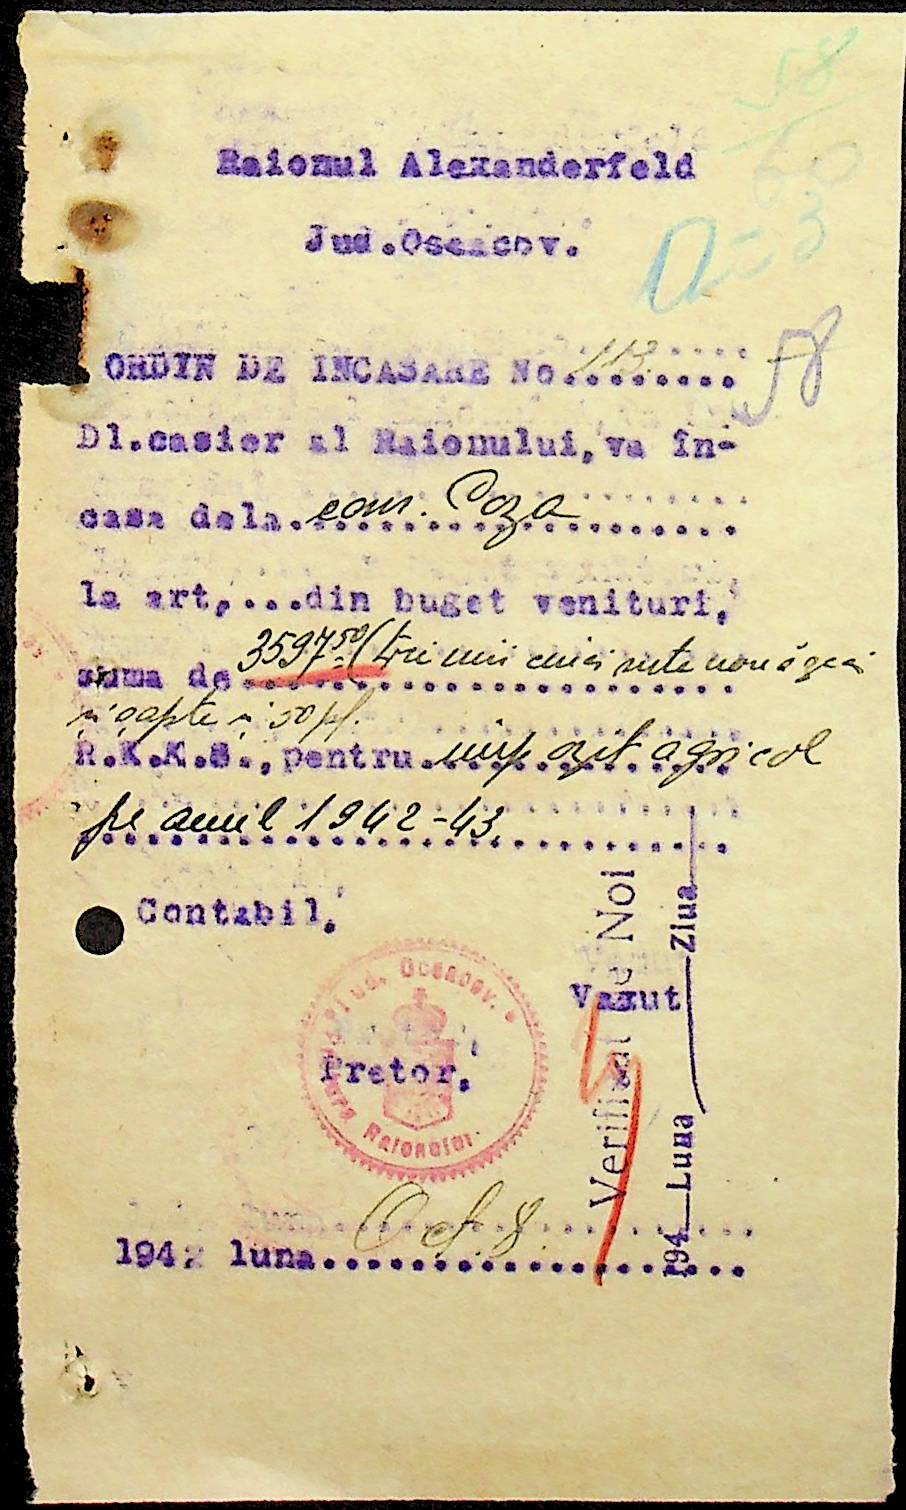 58
60
Raionul Alexanderfeld
D=3
Jud.Oceacov.
58
ORDIN DE INCASARE No.113.......
Dl.casier al Raionului,va în-
casa dela.com. Poza..........
la art,...din buget venituri,
suma de 3597.50 (trei mii cinci sute nouă zeci
și șapte și 50 pf.
R.K.K.S.,pentru.impozit agricol
pe anul 1942-43.
Contabil,
Jud. Oceacov.
Vazut
Pretor,
Raionului
Verificat de Noi
194 Luna Ziua
1942 luna....Oct. 8........